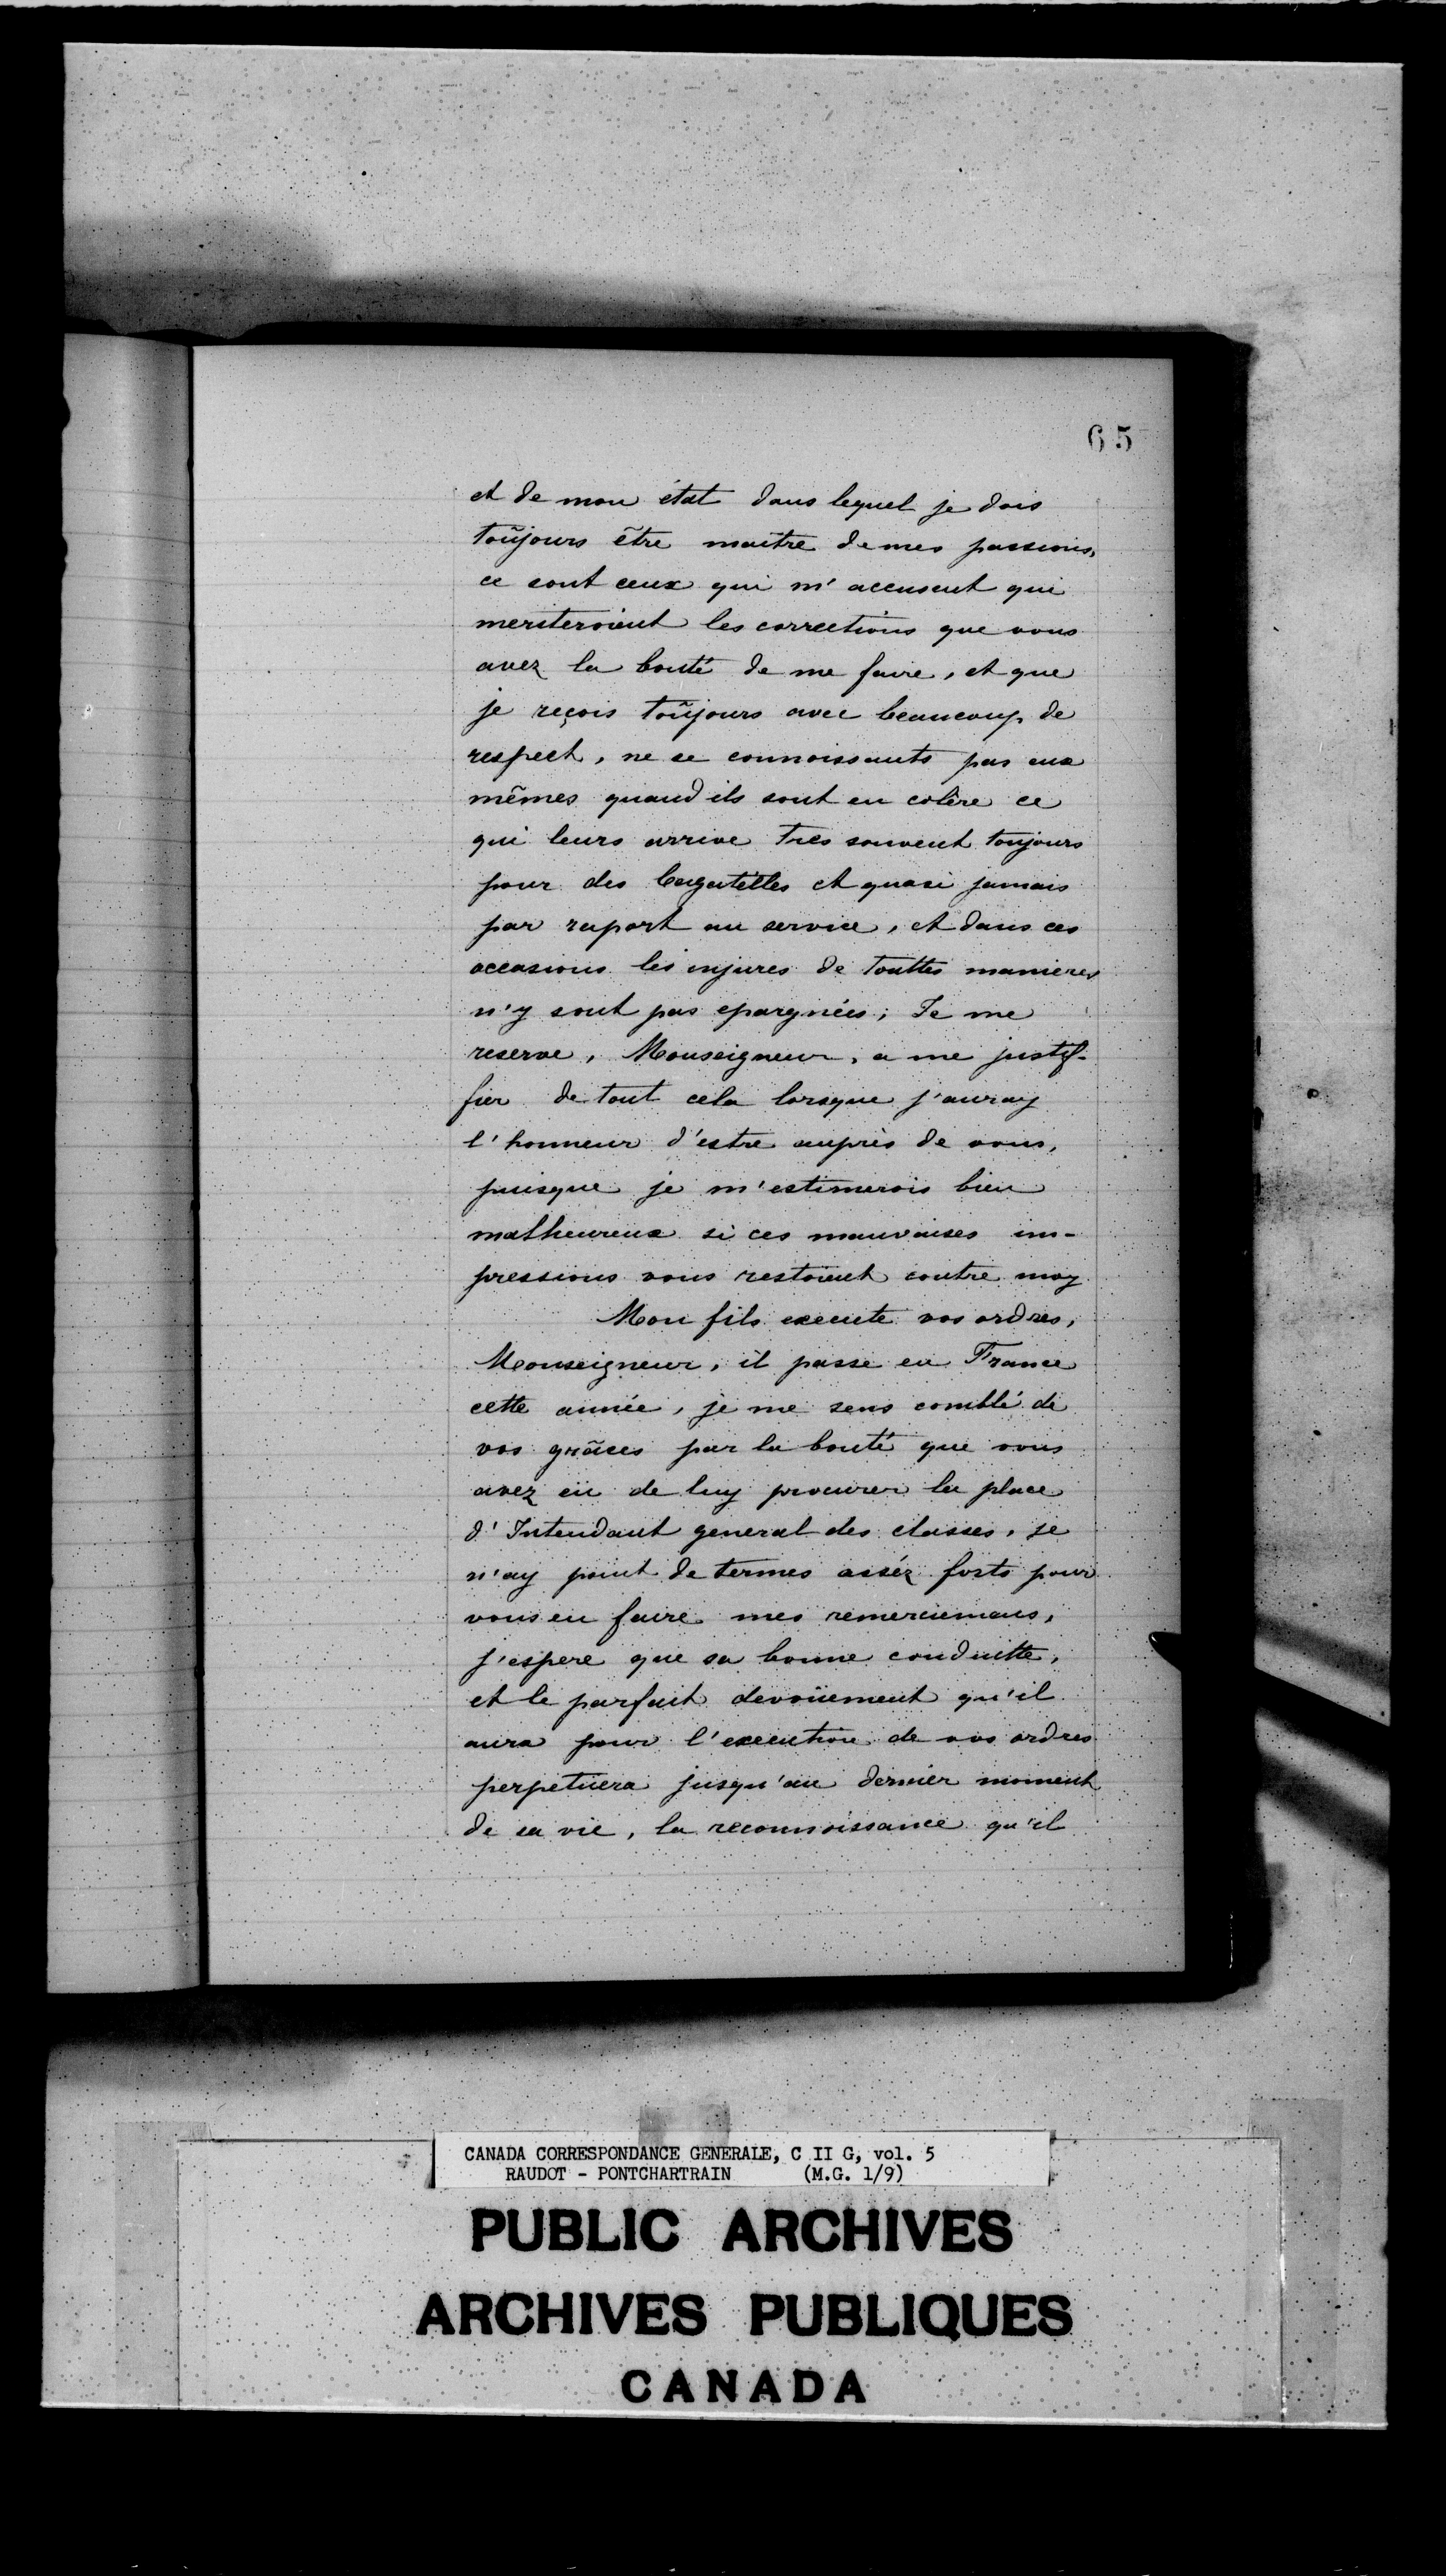 65
et de mon état dans lequel je dois
toûjours être maitre de mes passions,
ce sont ceux qui m'accusent qui
meriteroient les corrections que vous
avez la bonté de me faire, et que
je reçois toûjours avec beaucoup de
respect, ne se connoissants pas eux
mêmes quand ils sont en colère ce
qui leurs arrive tres souvent toujours
pour des bagatelles et quasi jamais
par raport au service, et dans ces
occasions les injures de touttes manieres
n'y sont pas epargnées; Je me
reserve, Monseigneur, a me justif-
fier de tout cela lorsque j'auray
l'honneur d'estre auprès de vous,
puisque je m'estimerois bien
malheureux si ces mauvaises im-
pressions vous restoient contre moy
Mon fils execute vos ordres,
Monseigneur, il passe en France
cette année, je me sens comblé de
vos grâces par la bonté que vous
avez eü de luy procurer la place
d'Intendant general des classes, je
n'ay point de termes assés forts pour
vous en faire mes remerciemans,
j'espere que sa bonne conduitte,
et le parfait devoüement qu'il
aura pour l'execution de vos ordres
perpetüera jusqu'au dernier moment
de sa vie, la reconnoissance qu'il
CANADA CORRESPONDANCE GENERALE, C II G, vol. 5
RAUDOT - PONTCHARTRAIN (M.G. 1/9)
PUBLIC ARCHIVES
ARCHIVES PUBLIQUES
CANADA